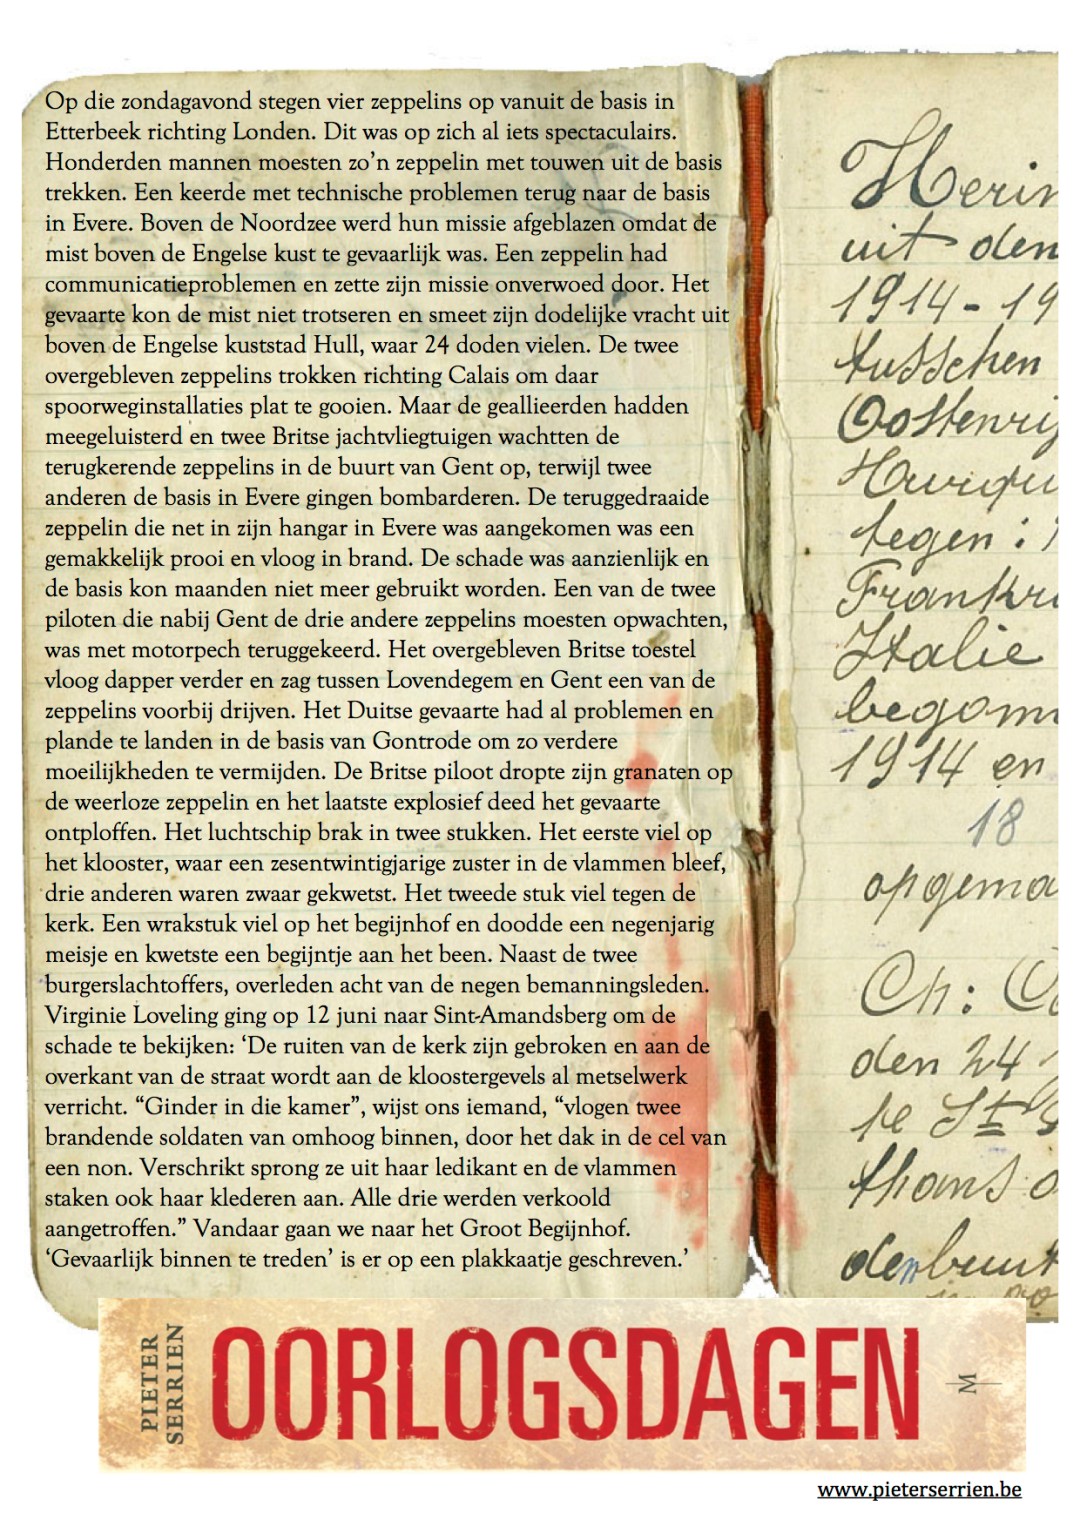 Op die zondagavond stegen vier zeppelins op vanuit de basis in
Etterbeek richting Londen. Dit was op zich al iets spectaculairs.
Honderden mannen moesten zo’n zeppelin met touwen uit de basis
trekken. Een keerde met technische problemen terug naar de basis
in Evere. Boven de Noordzee werd hun missie afgeblazen omdat de
mist boven de Engelse kust te gevaarlijk was. Een zeppelin had
communicatieproblemen en zette zijn missie onverwoed door. Het
gevaarte kon de mist niet trotseren en smeet zijn dodelijke vracht uit
boven de Engelse kuststad Hull, waar 24 doden vielen. De twee
overgebleven zeppelins trokken richting Calais om daar
spoorweginstallaties plat te gooien. Maar de geallieerden hadden
meegeluisterd en twee Britse jachtvliegtuigen wachtten de
terugkerende zeppelins in de buurt van Gent op, terwijl twee
anderen de basis in Evere gingen bombarderen. De teruggedraaide
zeppelin die net in zijn hangar in Evere was aangekomen was een
gemakkelijk prooi en vloog in brand. De schade was aanzienlijk en
de basis kon maanden niet meer gebruikt worden. Een van de twee
piloten die nabij Gent de drie andere zeppelins moesten opwachten,
was met motorpech teruggekeerd. Het overgebleven Britse toestel
vloog dapper verder en zag tussen Lovendegem en Gent een van de
zeppelins voorbij drijven. Het Duitse gevaarte had al problemen en
plande te landen in de basis van Gontrode om zo verdere
moeilijkheden te vermijden. De Britse piloot dropte zijn granaten op
de weerloze zeppelin en het laatste explosief deed het gevaarte
ontploffen. Het luchtschip brak in twee stukken. Het eerste viel op
het klooster, waar een zesentwintigjarige zuster in de vlammen bleef,
drie anderen waren zwaar gekwetst. Het tweede stuk viel tegen de
kerk. Een wrakstuk viel op het begijnhof en doodde een negenjarig
meisje en kwetste een begijntje aan het been. Naast de twee
burgerslachtoffers, overleden acht van de negen bemanningsleden.
Virginie Loveling ging op 12 juni naar Sint-Amandsberg om de
schade te bekijken: ‘De ruiten van de kerk zijn gebroken en aan de
overkant van de straat wordt aan de kloostergevels al metselwerk
verricht. “Ginder in die kamer”, wijst ons iemand, “vlogen twee
brandende soldaten van omhoog binnen, door het dak in de cel van
een non. Verschrikt sprong ze uit haar ledikant en de vlammen
staken ook haar klederen aan. Alle drie werden verkoold
aangetroffen.” Vandaar gaan we naar het Groot Begijnhof.
‘Gevaarlijk binnen te treden’ is er op een plakkaatje geschreven.’
Herin
uit den
1914-19
tusschen
Oostenrij
tegen :
Frankr
Italie
begon
1914 en
18
opgema
Ch:
den 24
te St
thans
PIETER
SERRIEN
OORLOGSDAGEN
M
www.pieterserrien.be